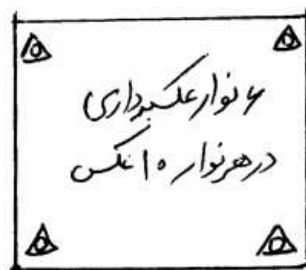 ۶ نوار عکسبرداری
در هر نوار ۱۰ عکس